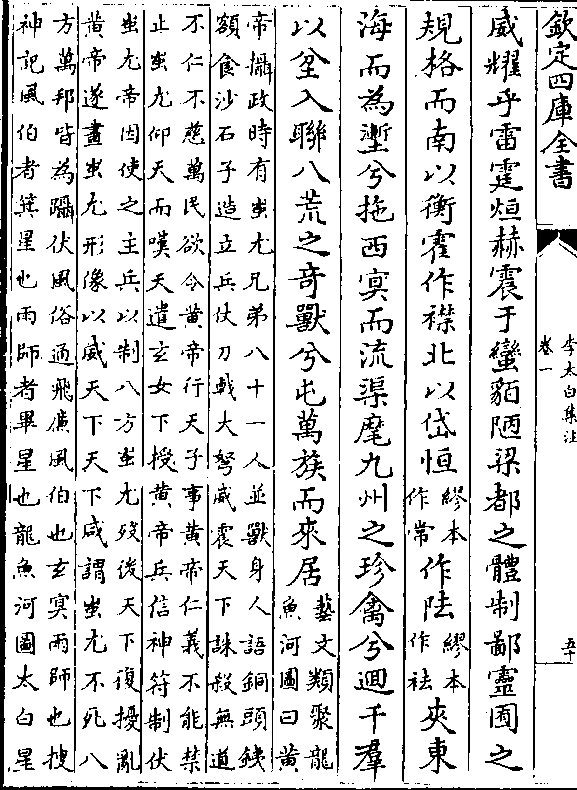 欽定四庫全書
李太白集注
卷一
五十
威耀乎雷霆烜赫震于蠻貊陋梁都之體制鄙靈囿之
規格而南以衡霍作襟北以岱恒繆本作常作阹繆本作祛夾東
海而為塹兮拖西㝠而流渠麾九州之珍禽兮迴千羣
以坌入聯八荒之奇獸兮屯萬族而來居藝文類聚龍魚河圖曰黄
帝攝政時有蚩尤兄弟八十一人並獸身人語銅頭鐵
額食沙石子造立兵仗刀㦸大弩威震天下誅殺無道
不仁不慈萬民欲令黄帝行天子事黄帝仁義不能禁
止蚩尤仰天而嘆天遣玄女下授黄帝兵信神符制伏
蚩尤帝因使之主兵以制八方蚩尤殁後天下復擾亂
黄帝遂畫蚩尤形像以威天下天下咸謂蚩尤不死八
方萬邦皆為躡伏風俗通飛廉風伯也玄㝠雨師也搜
神記風伯者箕星也雨師者畢星也龍魚河圖太白星